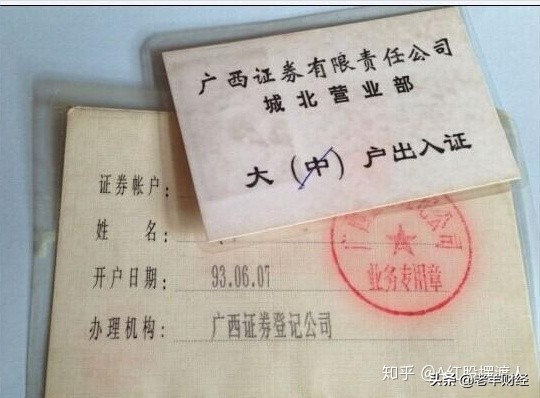 广西证券有限责任公司
城北营业部
大（中）户出入证
证券帐户：
姓　名：
开户日期：93.06.07
办理机构：广西证券登记公司
业务专用章
知乎
头条 @老牛财经